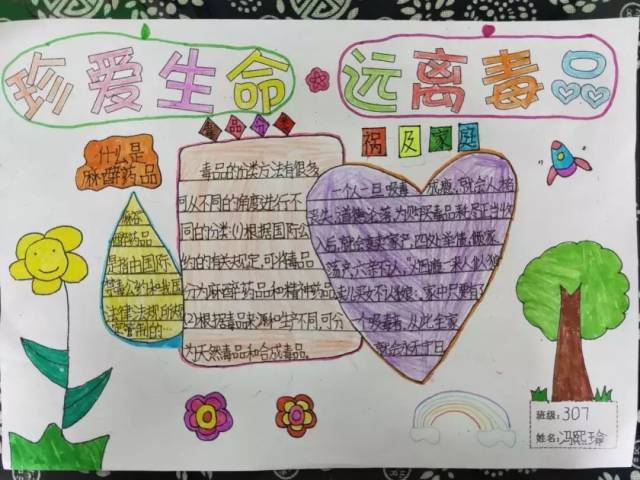 珍爱生命 远离毒品
什么是
麻醉药品
麻
醉药品
是指由国际
禁毒公约和我国
法律法规所
管制的
毒品分类
毒品的分类方法有很多,
可从不同的角度进行不
同的分类:(1)根据国际公
约的有关规定,可将毒品
分为麻醉药品和精神药品
(2)根据毒品来源和生产不同,可分
为天然毒品和合成毒品。
祸及家庭
一个人一旦吸毒 就会人格
丧失,道德沦落,为购买毒品耗尽正当收
入后,就会变卖家产,四处举债,
六亲不认。
家中只要有了
一个吸毒者,从此全家
就会永无宁日
班级:307
姓名:冯熙瑜